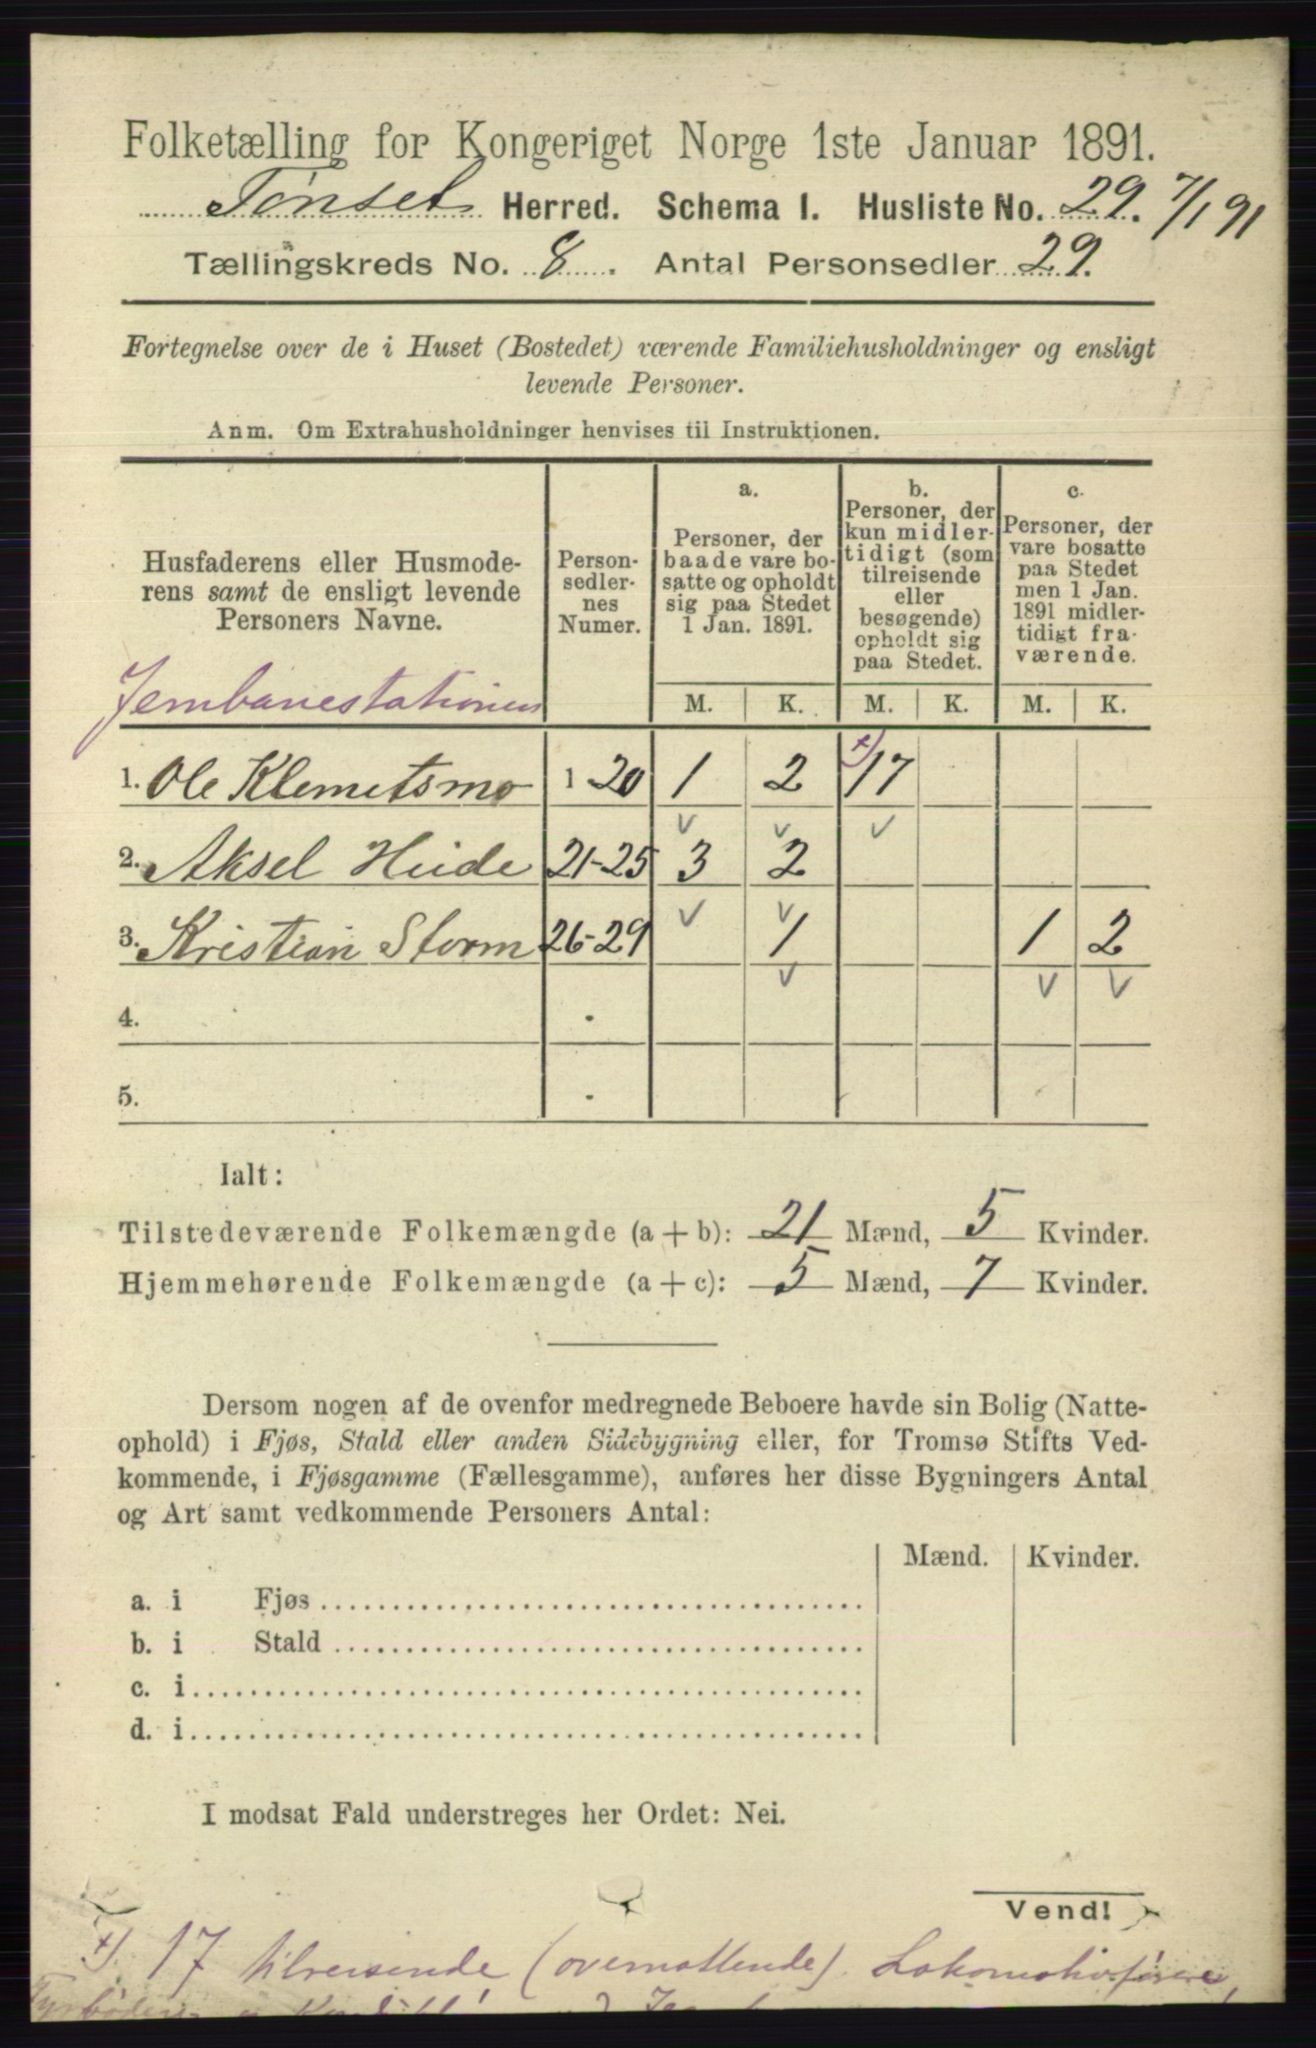 Folketælling for Kongeriget Norge 1ste Januar 1891.
Tønset Herred. Schema I. Husliste No. 29. 7/1 91
Tællingskreds No. 8. Antal Personsedler 29.
Fortegnelse over de i Huset (Bostedet) værende Familiehusholdninger og ensligt
levende Personer.
Anm. Om Extrahusholdninger henvises til Instruktionen.
Husfaderens eller Husmode-
rens samt de ensligt levende
Personers Navne.
Person-
sedler-
nes
Numer.
a.
Personer, der
baade vare bo-
satte og opholdt
sig paa Stedet
1 Jan. 1891.
b.
Personer, der
kun midler-
tidigt (som
tilreisende
eller
besøgende)
opholdt sig
paa Stedet.
c.
Personer, der
vare bosatte
paa Stedet
men 1 Jan.
1891 midler-
tidigt fra-
værende.
Jernbanestationen
M. K. M. K. M. K.
1. Ole Klemetsmo 1 20 1 2 x) 17
v v v
2. Aksel Heide 21-25 3 2
v v
3. Kristian Storm 26-29 1 1 2
v v v
4. -
5. -
Ialt:
Tilstedeværende Folkemængde (a + b): 21 Mænd, 5 Kvinder.
Hjemmehørende Folkemængde (a + c): 5 Mænd, 7 Kvinder.
Dersom nogen af de ovenfor medregnede Beboere havde sin Bolig (Natte-
ophold) i Fjøs, Stald eller anden Sidebygning eller, for Tromsø Stifts Ved-
kommende, i Fjøsgamme (Fællesgamme), anføres her disse Bygningers Antal
og Art samt vedkommende Personers Antal:
Mænd. Kvinder.
a. i Fjøs
b. i Stald
c. i
d. i
I modsat Fald understreges her Ordet: Nei.
Vend!
x). 17 tilreisende (overnattende). Lokomotivførere,